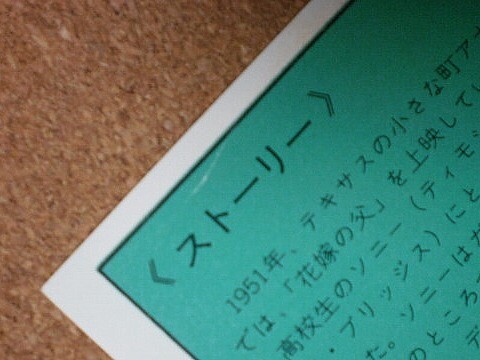 《ストーリー》
1951年、テキサスの小さな町ア
では、「花嫁の父」を上映してい
高校生のソニー（ティモシ
・ブリッジス）にと
た。ソニーはガ
のところ
デ